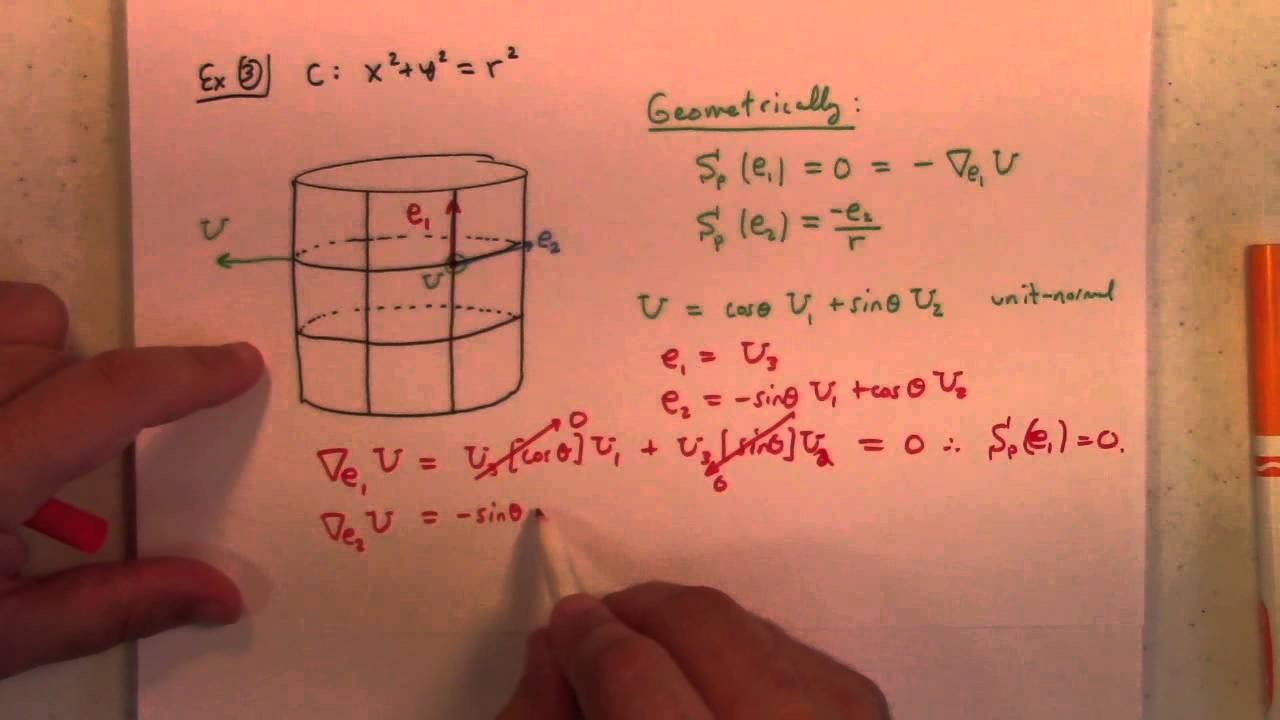 Ex ③ C: x² + y² = r²
Geometrically:
Sₚ(e₁) = 0 = -∇e₁ U
Sₚ(e₂) = -e₂/r
U
e₁
e₂
U
U = cosθ U₁ + sinθ U₂ unit-normal
e₁ = U₃
e₂ = -sinθ U₁ + cosθ U₂
∇e₁ U = U₃[cosθ]U₁ + U₃[sinθ]U₂ = 0 ∴ Sₚ(e₁) = 0.
0
0
∇e₂ U = -sinθ